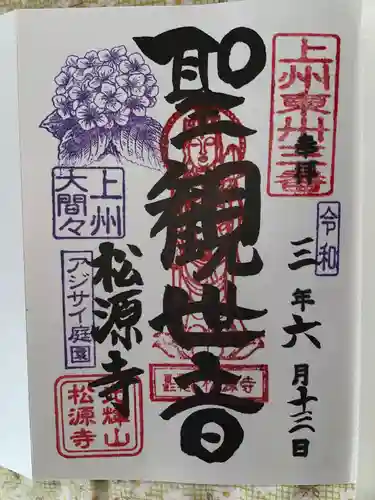 上州東卅三番
奉拝
令和
三年六月十三日
聖観世音
上州
大間々
アジサイ庭園
松源寺
輝山
松源寺